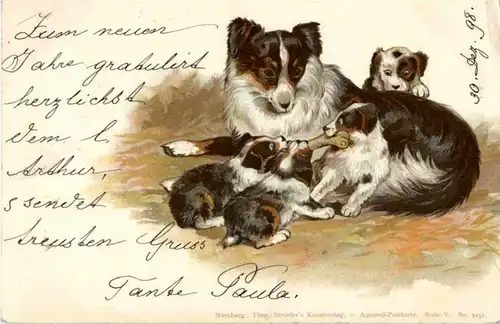 Zum neuen
Jahre gratulirt
herzlichst
dem l.
Arthur,
s sendet
treusten Gruss
Tante Paula.
30. Dez. 98.
Nürnberg: Theo. Stroefer's Kunstverlag. – Aquarell-Postkarte. Serie V. No. 5251.